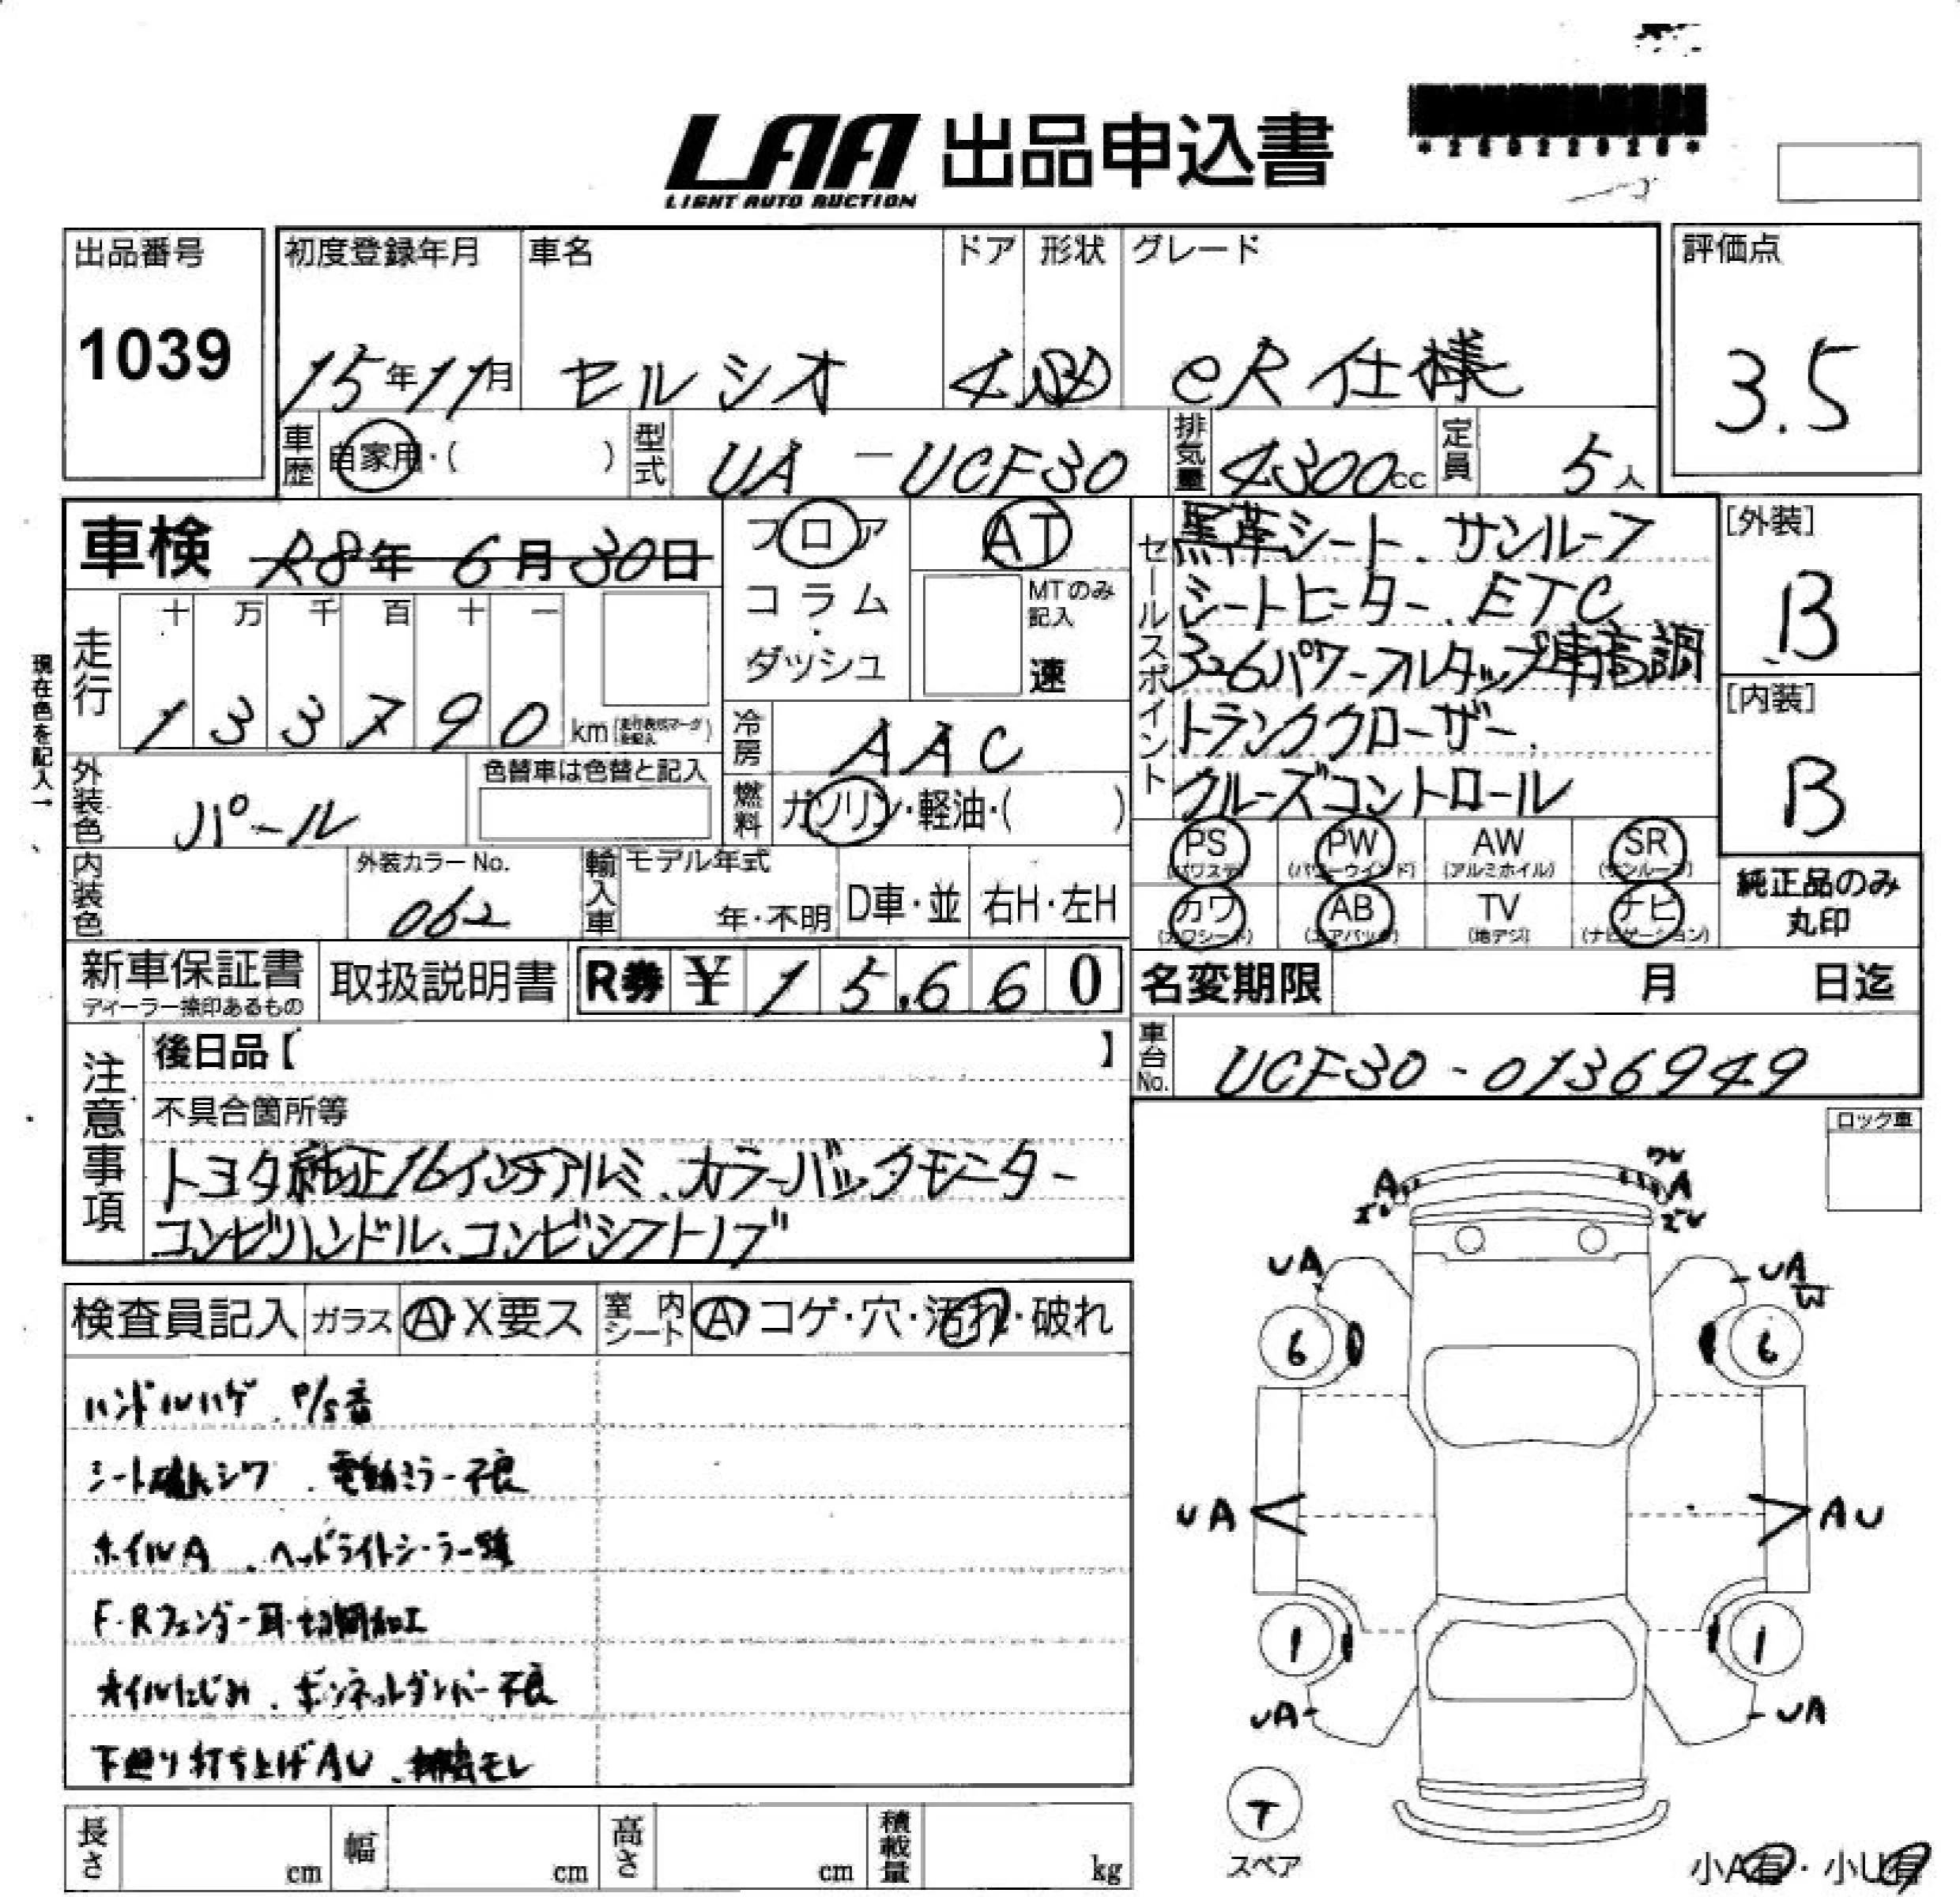 LAA 出品申込書
LIGHT AUTO AUCTION
出品番号
1039
初度登録年月 車名 ドア 形状 グレード
15年11月 セルシオ 4 eR仕様
評価点
3.5
車歴 自家用・( ) 型式 UA-UCF30 排気量 4300cc 定員 5人
車検 R8年6月30日
フロア
コラム
・
ダッシュ
AT
MTのみ
記入
速
走行
十 万 千 百 十 一
1 3 3 7 9 0 km
現在色を記入→
冷房 AAC
燃料 ガソリン・軽油・( )
外装色 パール
色替車は色替と記入
内装色
外装カラーNo.
062
輸入車 モデル年式
年・不明 D車・並 右H・左H
セールスポイント
黒革シート、サンルーフ
シートヒーター、ETC
トランククローザー、
クルーズコントロール
[外装]
B
[内装]
B
PS PW AW SR
(パワステ) (パワーウインド) (アルミホイル) (サンルーフ)
カワ AB TV ナビ
(カワシート) (エアバッグ) (地デジ) (ナビゲーション)
純正品のみ
丸印
新車保証書
ディーラー捺印あるもの
取扱説明書
R券 ¥ 15,660
名変期限 月 日迄
車台No. UCF30-0136949
注意事項
後日品【 】
不具合箇所等
トヨタ純正16インチアルミ、カラーバックモニター
コンビハンドル、コンビシフトノブ
ロック車
検査員記入 ガラス A・X要ス 室内シート A コゲ・穴・汚れ・破れ
ハンドルハゲ、P/S音
シート破れシワ、電動ミラー不良
ホイルA、ヘッドライトシーラー
F・Rフェンダー耳・切開加工
オイルにじみ、ボンネットダンパー不良
下廻り打ち上げAU、排気モレ
ワレ
A A
ズレ ズレ
UA UA
W
6 6
UA AU
1 1
UA UA
T
スペア
小A有・小U有
長さ cm 幅 cm 高さ cm 積載量 kg